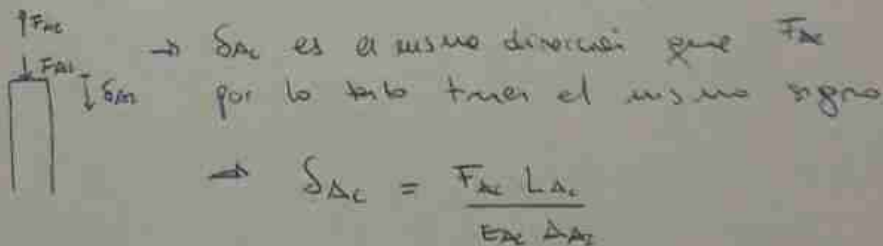 ↑F_AC
→ δ_AC es a mismo dirección que F_AC
↓F_AC ↓δ_AC por lo tanto tienen el mismo signo
→ δ_AC = F_AC L_AC
E_AC A_AC